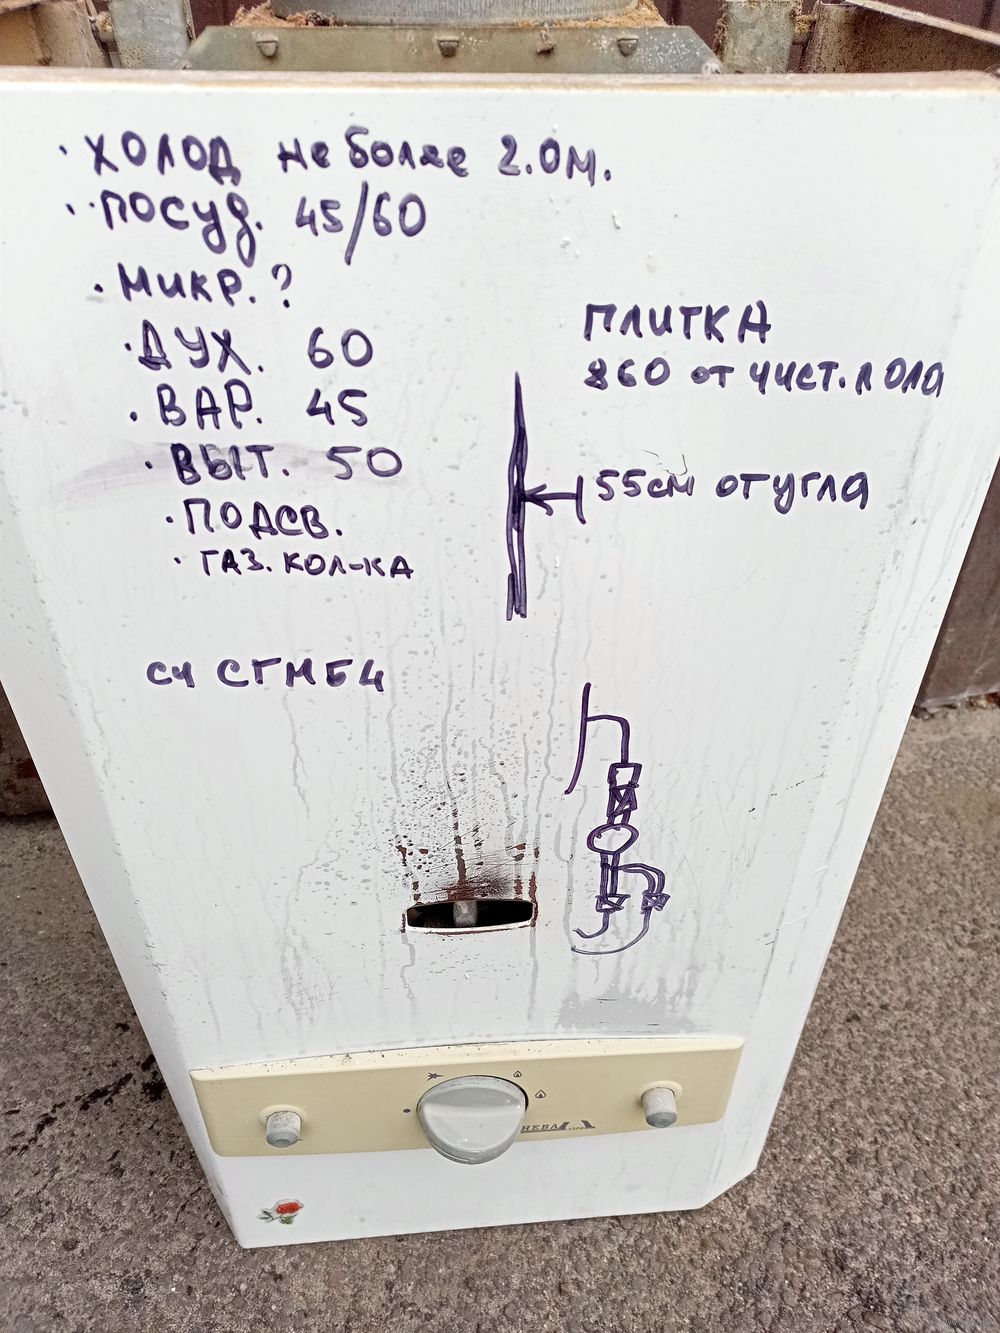 · ХОЛОД не более 2.0м.
· ПОСУД. 45/60
· МИКР. ?
· ДУХ. 60
· ВАР. 45
· ВЫТ. 50
· ПОДСВ.
· ГАЗ. КОЛ-КА
ПЛИТКА
860 от чист. пола
55см от угла
сч СГМБ4
НЕВА